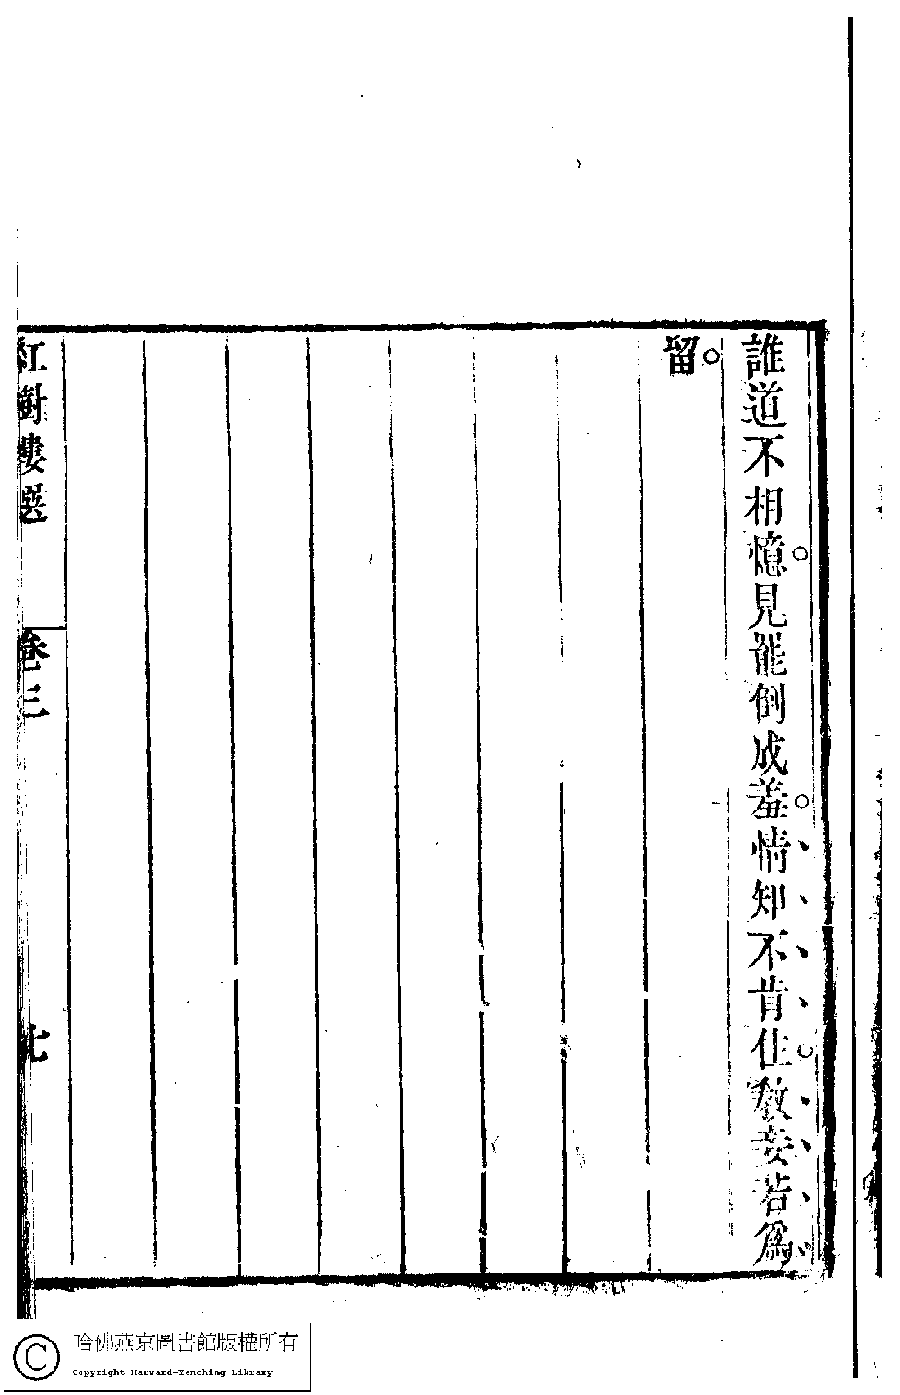 誰道不相憶見罷倒成羞情知不肯住教妾若爲
留
紅樹樓選
卷三
七
哈佛燕京圖書館版權所有
Copyright Harvard-Yenching Library